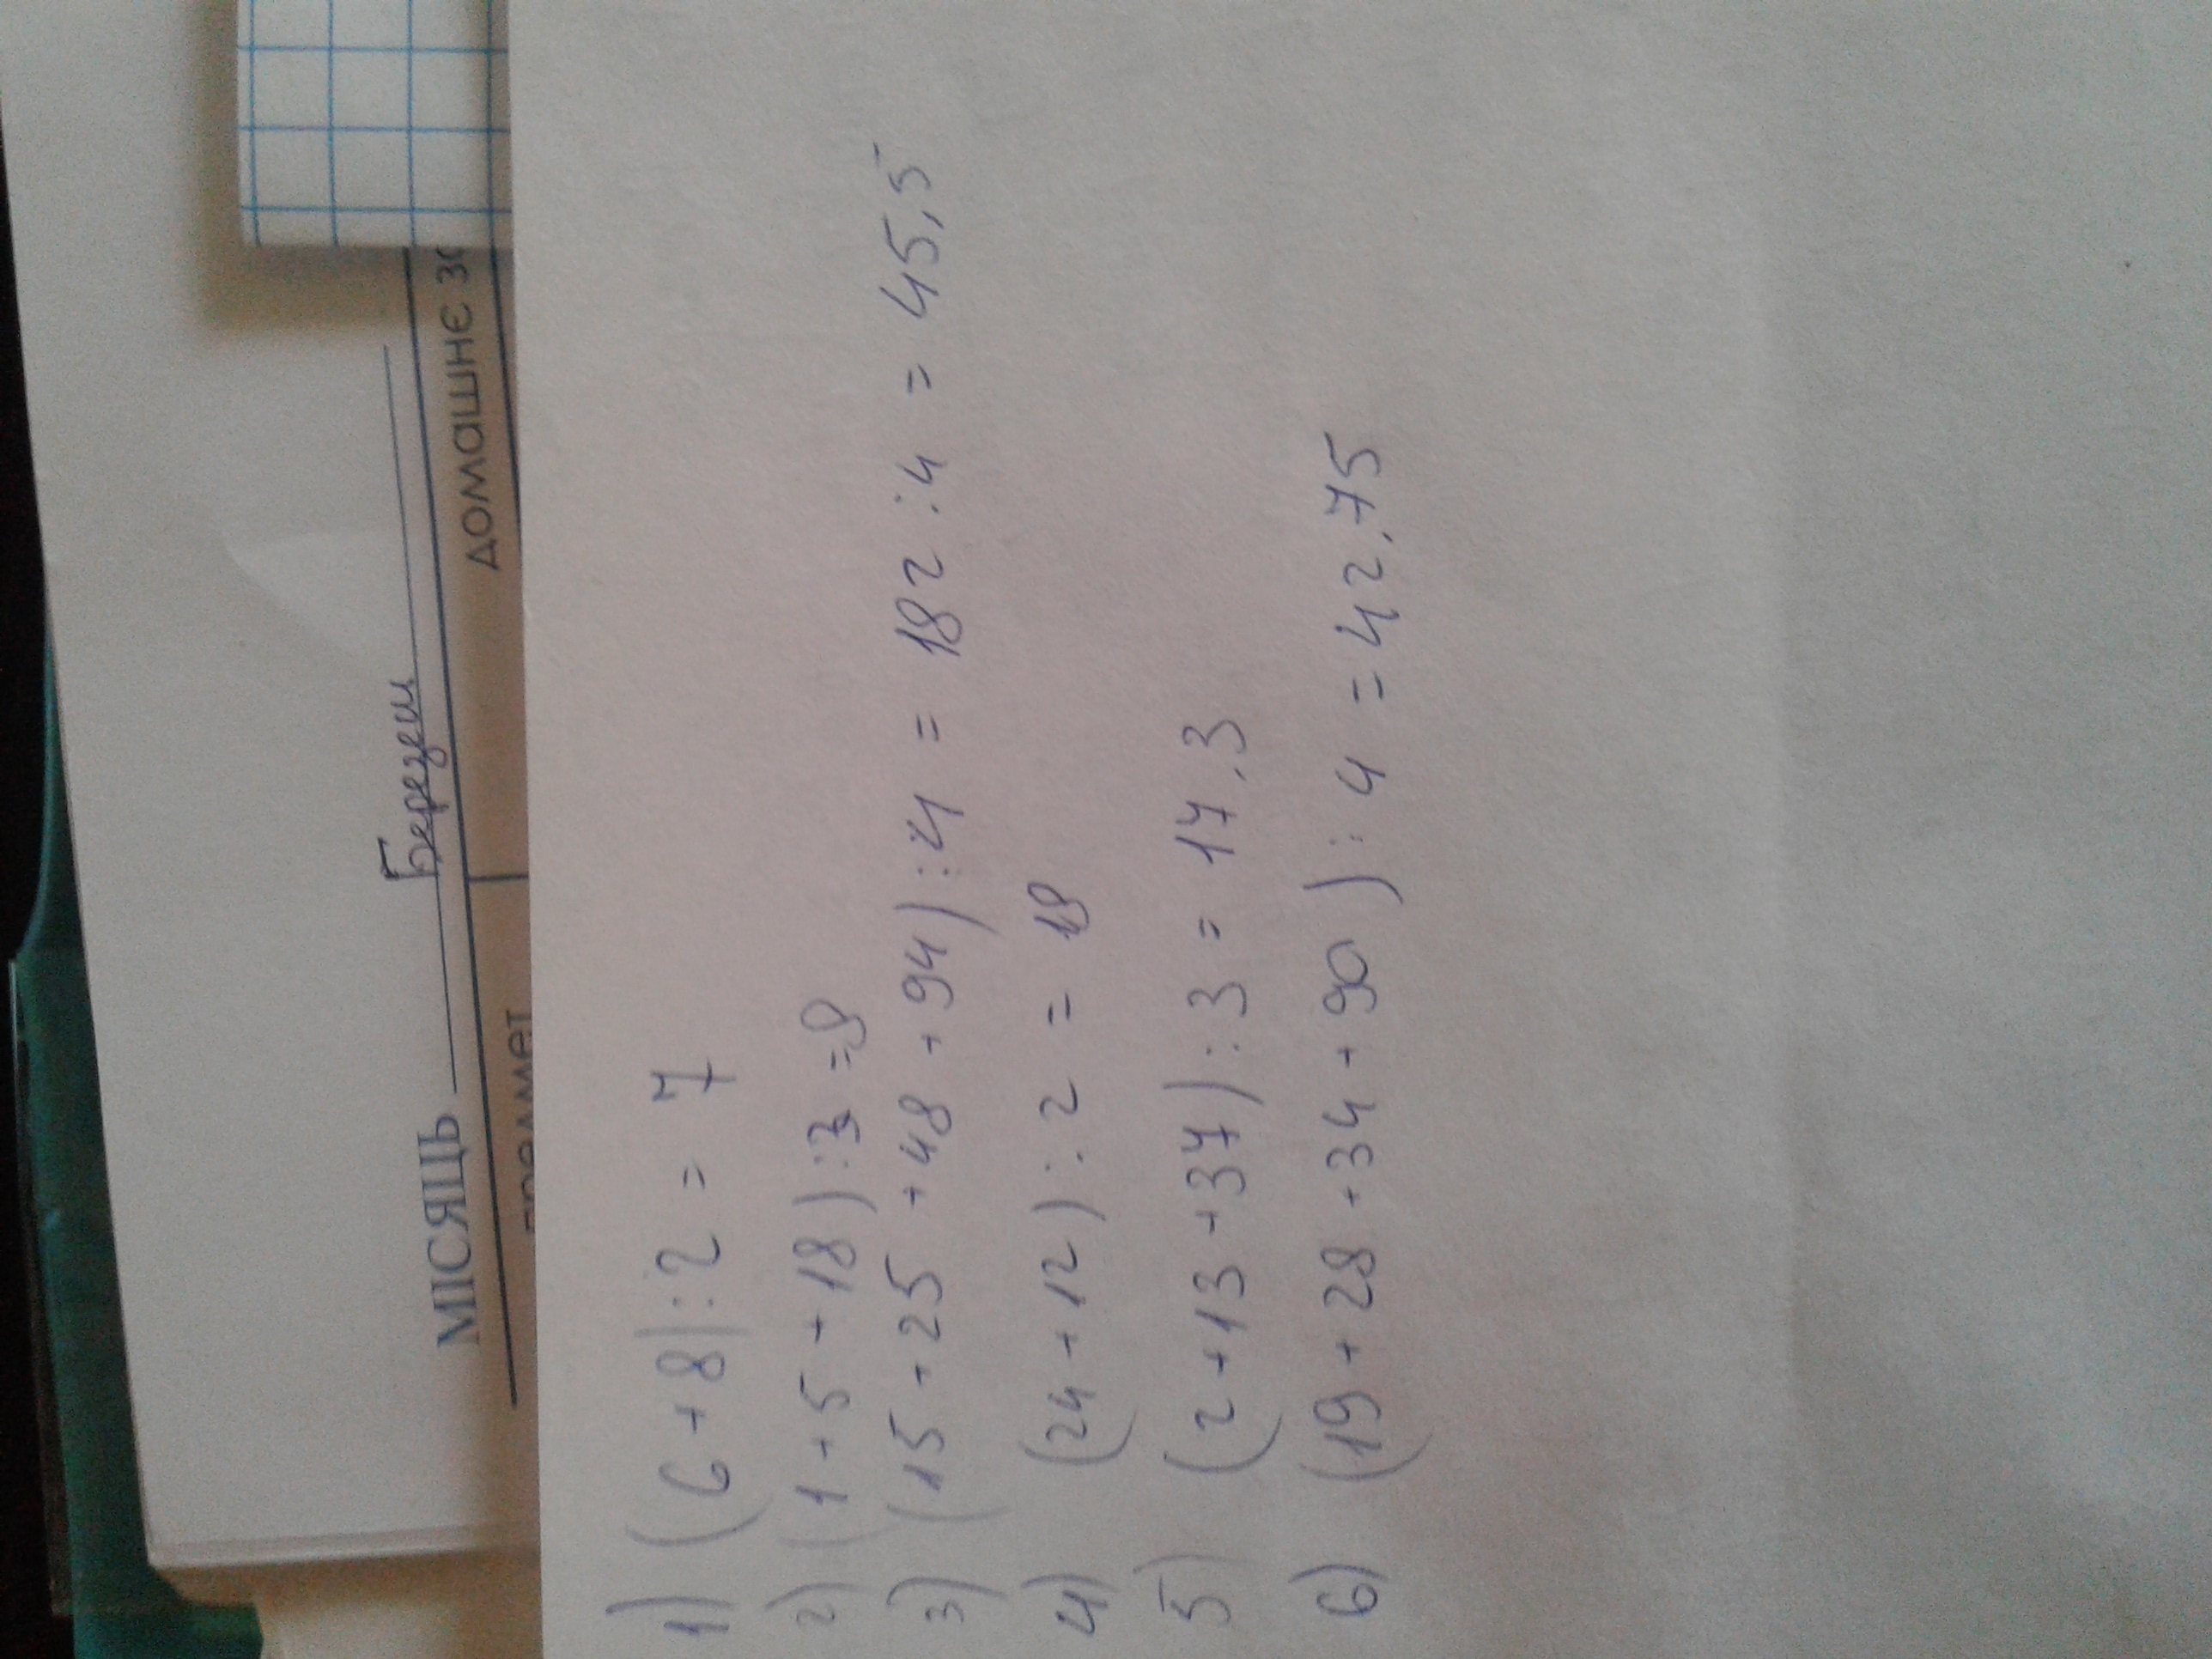 МІСЯЦЬ Березень
предмет домашнє за
1) (6+8):2 = 7
2) (1+5+18):3=8
3) (15+25+48+94):4 = 182:4 = 45,5
4) (24+12):2 = 18
5) (2+13+37):3 = 17,3
6) (19+28+34+90):4 = 42,75